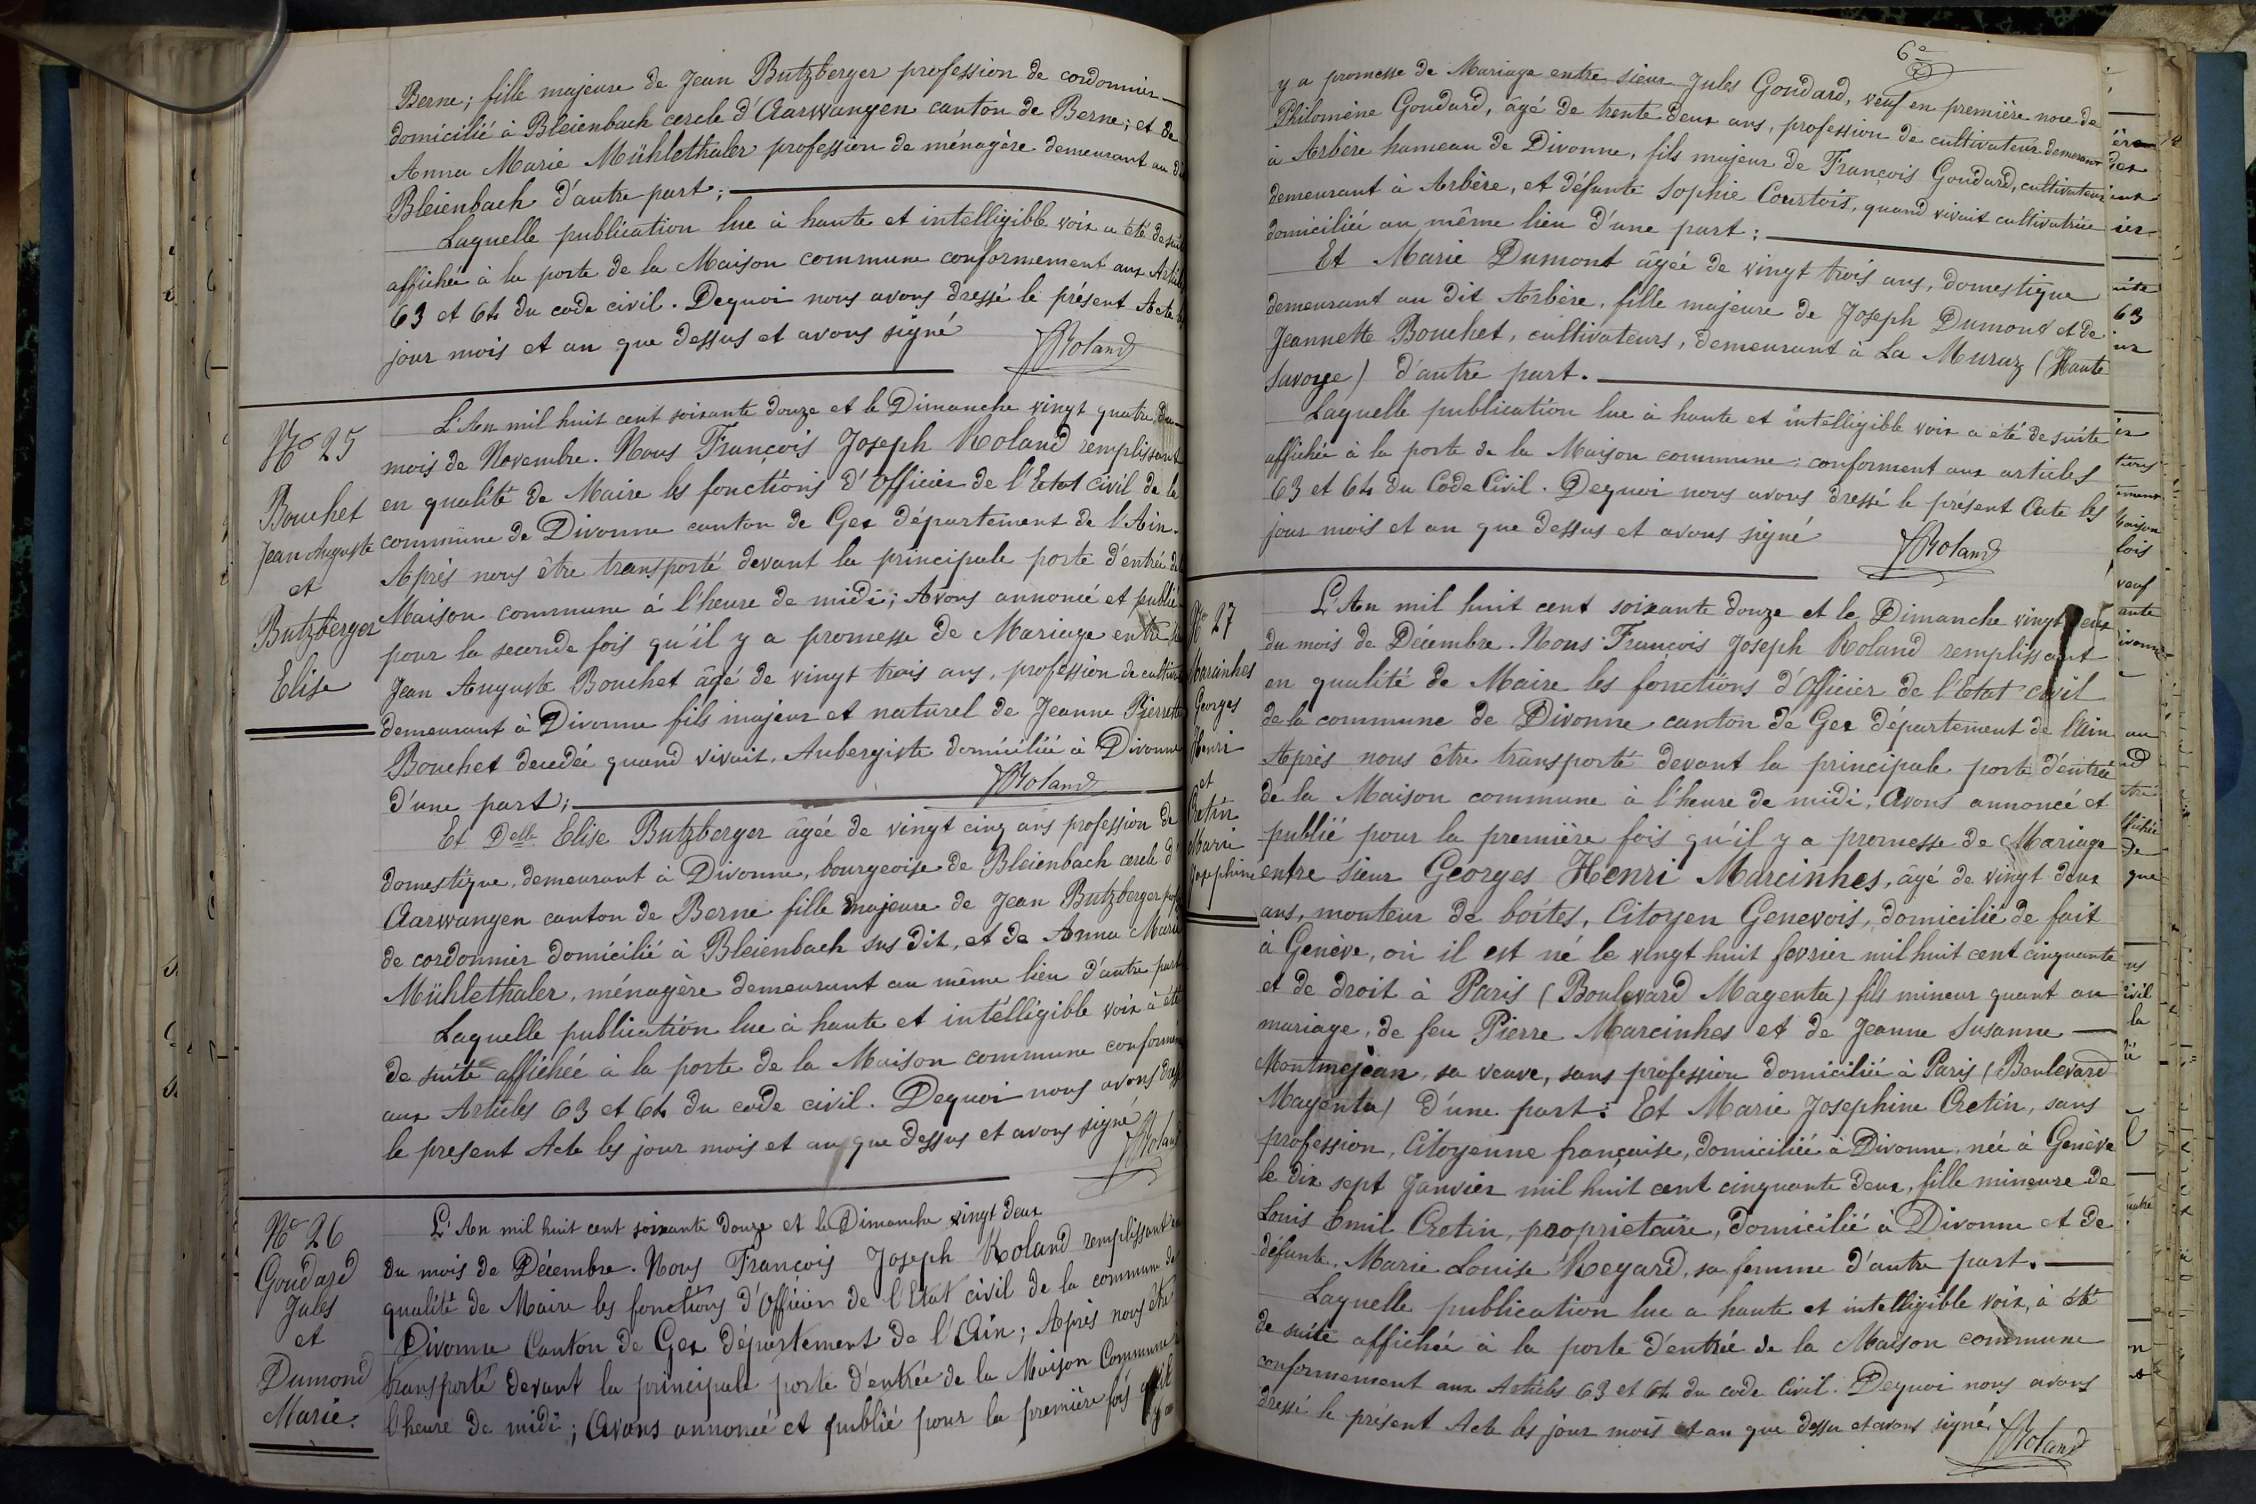 Berne; fille majeure de Jean Butzberger profession de cordonnier
domicilié à Bleienbach cercle d'Aarwangen canton de Berne; et de
Anna Marie Mühlethaler profession de ménagère demeurant au dit
Bleienbach d'autre part;
Laquelle publication lue à haute et intelligible voix a été de suite
affichée à la porte de la Maison commune conformement aux Articles
63 et 64 du code civil. Dequoi nous avons dressé le présent Acte les
jour mois et an que dessus et avons signé
JRoland
No 25
Bouchet
Jean Auguste
et
Butzberger
Elise
L'An mil huit cent soixante douze et le Dimanche vingt quatre du
mois de Novembre. Nous François Joseph Roland remplissant
en qualité de Maire les fonctions d'Officier de l'Etat civil de la
commune de Divonne canton de Gex département de l'Ain.
Après nous être transporté devant la principale porte d'entrée de
Maison commune à l'heure de midi; Avons annoncé et publié
pour la seconde fois qu'il y a promesse de Mariage entre
Jean Auguste Bouchet âgé de vingt trois ans, profession de
demeurant à Divonne fils majeur et naturel de Jeanne Pierrette
Bouchet decedée quand vivait, Aubergiste domiciliée à Divonne
d'une part;
JRoland
Et Delle Elise Butzberger âgée de vingt cinq ans profession de
domestique, demeurant à Divonne, bourgeoise de Bleienbach cercle d'
Aarwangen canton de Berne fille majeure de Jean Butzberger
de cordonnier domicilié à Bleienbach sus dit, et de Anna Marie
Mühlethaler, ménagère demeurant au même lieu d'autre part
Laquelle publication lue à haute et intélligible voix à été
de suite affichée à la porte de la Maison commune
aux Articles 63 et 64 du code civil. Dequoi nous avons
le present Acte les jour mois et an que dessus et avons signé
JRoland
No 26
Goudard
Jules
et
Dumond
Marie.
L'An mil huit cent soixante douze et le Dimanche vingt deux
du mois de Décembre. Nous François Joseph Roland remplissant en
qualité de Maire les fonctions d'Officier de l'Etat civil de la commune de
Divonne Canton de Gex département de l'Ain; Après nous être
transporté devant la principale porte d'entrée de la Maison Commune
l'heure de midi; Avons annoncé et publié pour la première fois qu'il
y a
6e
y a promesse de Mariage entre sieur Jules Goudard, veuf en première noce de
Philomène Goudard, âgé de trente deux ans, profession de cultivateur demeurant
à Arbère hameau de Divonne, fils majeur de François Goudard, cultivateur
demeurant à Arbère, et défunte Sophie Courtois, quand vivait cultivatrice
domiciliée au même lieu d'une part;
Et Marie Dumont âgée de vingt trois ans, domestique
demeurant au dit Arbère, fille majeure de Joseph Dumont et de
Jeannette Bouchet, cultivateurs, demeurant à La Muraz (Haute
Savoye) d'autre part.
Laquelle publication lue à haute et intelligible voix a été de suite
affichée à la porte de la Maison commune; conforment aux articles
63 et 64 du Code Civil. Dequoi nous avons dressé le présent Acte les
jour mois et an que dessus et avons signé
JRoland
No 27
Marcinhes
Georges
Henri
et
Cretin
Marie
Josephine
L'An mil huit cent soixante douze et le Dimanche vingt deux
du mois de Décembre. Nous François Joseph Roland remplissant
en qualité de Maire les fonctions d'Officier de l'Etat civil
de la commune de Divonne canton de Gex département de l'Ain
Après nous être transporté devant la principale porte d'entrée
de la Maison commune à l'heure de midi, Avons annoncé et
publié pour la première fois qu'il y a promesse de Mariage
entre sieur Georges Henri Marcinhes, âgé de vingt deux
ans, monteur de boîtes, Citoyen Genevois, domicilié de fait
à Genève, où il est né le vingt huit fevrier mil huit cent cinquante
et de droit à Paris (Boulevard Magenta) fils mineur quant au
mariage, de feu Pierre Marcinhes et de Jeanne Susanne
Montméjean, sa veuve, sans profession domiciliée à Paris (Boulevard
Magenta) d'une part: Et Marie Josephine Cretin, sans
profession, Citoyenne française, domiciliée à Divonne, née à Genève
le dix sept Janvier mil huit cent cinquante deux, fille mineure de
Louis Emil Cretin, propriétaire, domicilié à Divonne et de
défunte, Marie Louise Regard, sa femme d'autre part.
Laquelle publication lue a haute et intelligible voix, à été
de suite affichée à la porte d'entrée de la Maison commune
conformement aux Articles 63 et 64 du code Civil. Dequoi nous avons
dressé le présent Acte les jour mois et an que dessu et avons signé
JRoland